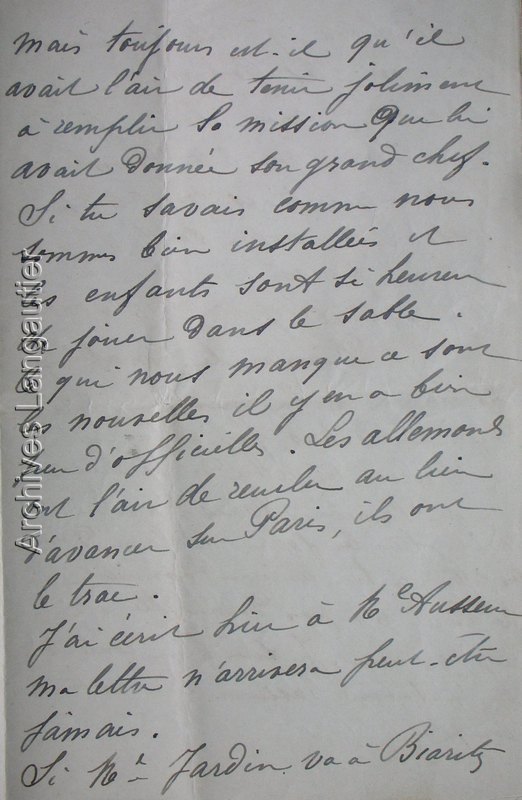 mais toujours est-il qu'il
avait l'air de tenir joliment
à remplir sa mission que lui
avait donnée son grand chef.
Si tu savais comme nous
sommes bien installées et
les enfants sont si heureux
de jouer dans le sable.
qui nous manque ce sont
les nouvelles il y en a bien
peu d'officielles. Les allemands
ont l'air de reculer au lieu
d'avancer sur Paris, ils ont
le trac.
J'ai écrit hier à Me Aussem
ma lettre n'arrivera peut-être
jamais.
Si Me Jardin va à Biaritz
Archives Langautier